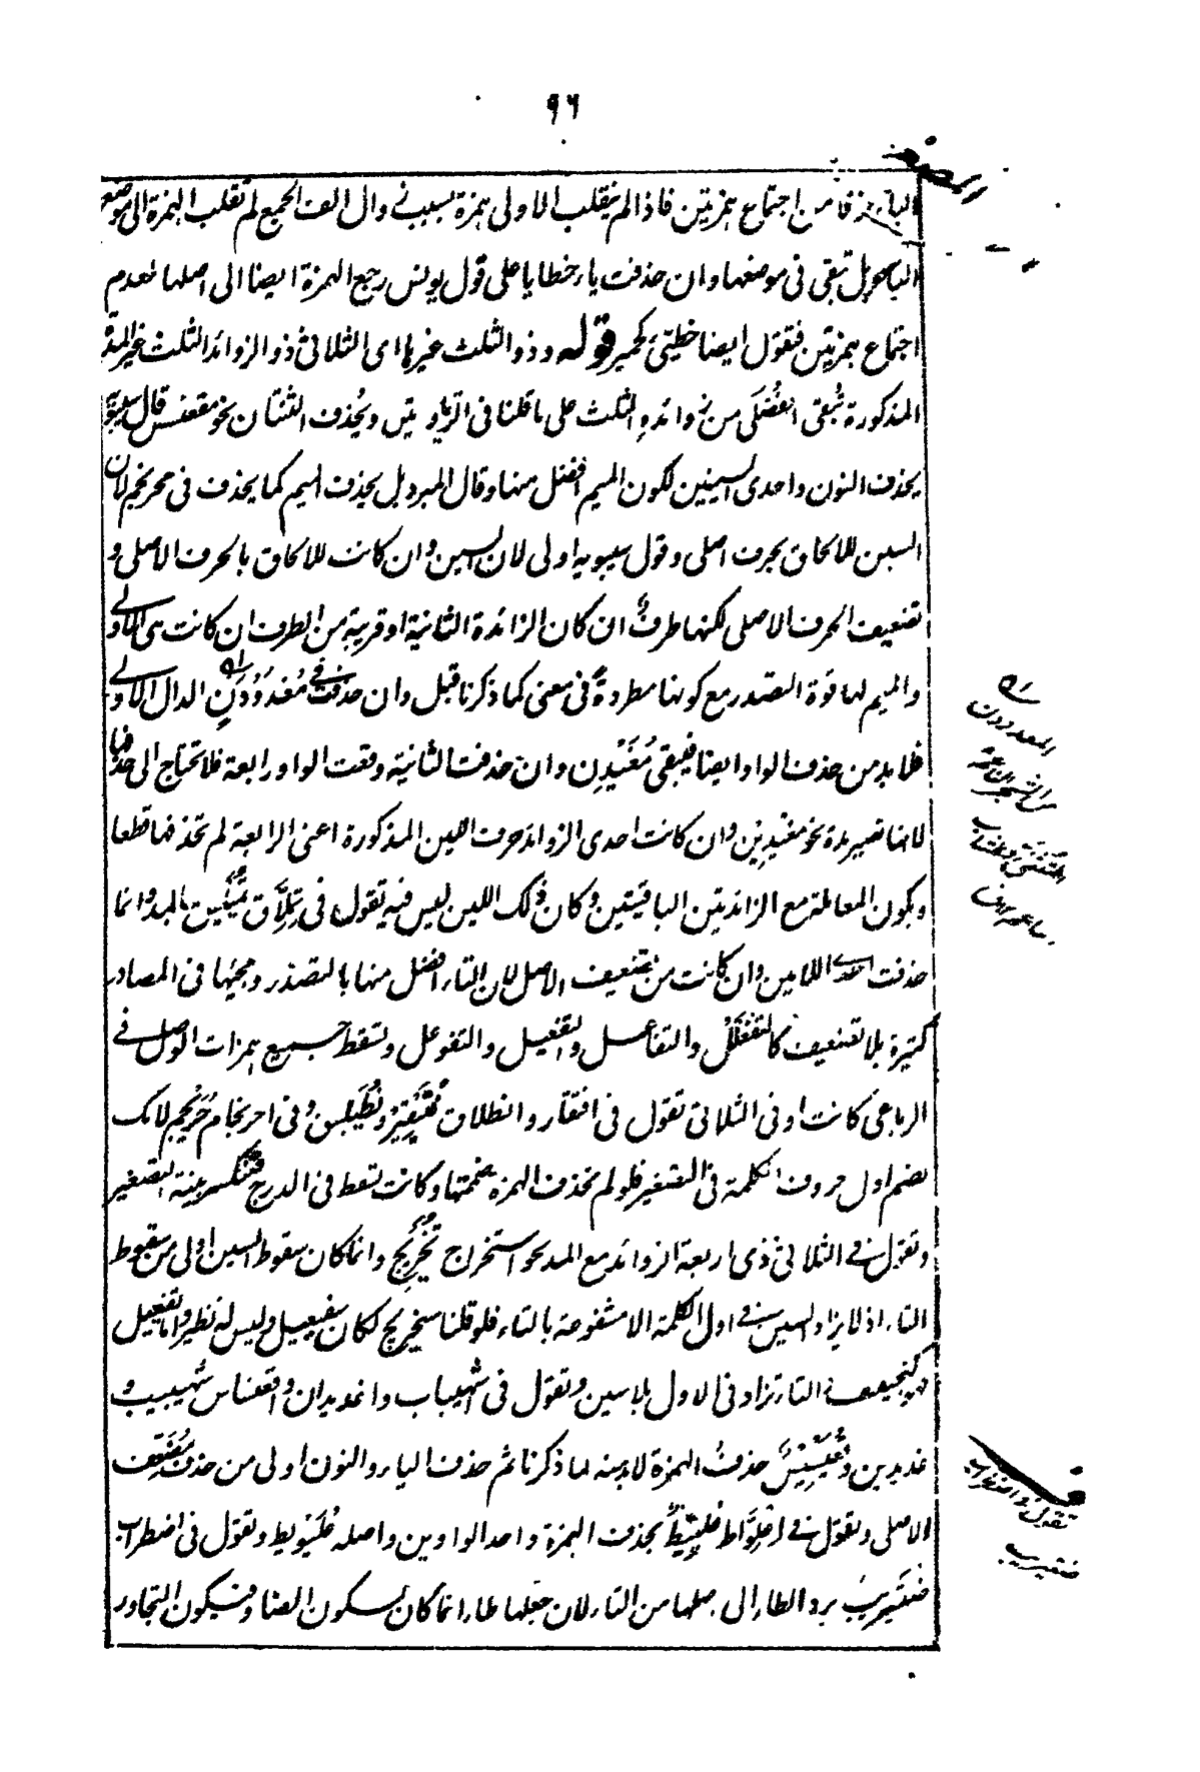 ٩٦
الياء فرقا من اجتماع همزتين فاذا لم ينقلب الاولى همزة بسبب زوال الف الجمع لم تقلب الهمزة الى موضع
الياء بل تبقى فى موضعها وان حذفت ياء خطايا على قول يونس رجع الهمزة ايضا الى اصلها لعدم
اجتماع همزتين فتقول ايضا خطيئ كحمير قوله وذو الثلث غيرها اى الثلاثى ذو الزوائد الثلث غير المدة
المذكورة تُبقى الفُضلَى من زوائده الثلث على ما قلنا فى الزيادتين ويُحذف الثنتان نحو مقعنسس قال سيبويه
يحذف النون واحدى السينين لكون الميم افضل منها وقال المبرد بل يحذف الميم كما يحذف فى محرنجم لان
السين للالحاق بحرف اصلى وقول سيبويه اولى لان السين وان كانت للالحاق بالحرف الاصلى و
تضعيف الحرف الاصلى لكنها طرف ان كان الزائدة الثانية او قريبة من الطرف ان كانت هى الاولى
والميم لها قوة التصدر مع كونها مطردة فى معنى كما ذكرنا قبل وان حذفت فى مُغْدَوْدِنٍ الدال الاولى
فلا بد من حذف الواو ايضا فيبقى مُغَيْدِن وان حذفت الثانية وقعت الواو رابعة فلا تحتاج الى حذفها
لانها تصير مدة نحو مغيدين وان كانت احدى الزوائد حرف اللين المذكورة اعنى الرابعة لم تحذفها قطعا
ويكون المعاملة مع الزائدتين الباقيتين وكان ذلك اللين ليس فيه تقول فى تِمِلّاق تُمَيْلِيق بالمد وانما
حذفت احدى اللامين وان كانت من تضعيف الاصل لان التاء افضل منها بالتصدر ومجيئها فى المصادر
كثيرة بلا تضعيف كالتفعلل والتفاعل والتفعيل والتفوعل وتسقط جميع همزات الوصل فى
الرباعى كانت او فى الثلاثى تقول فى افتقار وانطلاق فُتَيْقِير ونُطَيْلِيق وفى احرنجام حُرَيْجِيم لانك
تضم اول حروف الكلمة فى التصغير فلو لم تحذف الهمزة ضممتها وكانت تسقط فى الدرج فتنكسر بنية التصغير
وتقول فى الثلاثى ذى اربعة الزوائد مع المد نحو استخراج تُخَيْرِيج وانما كان سقوط السين اولى من سقوط
التاء اذ لا يزاد السين فى اول الكلمة الا مشفوعة بالتاء فلو قلنا سخيريج لكان سفيعيل وليس له نظير واما تفعيل
كتجيفيف التاء تزاد فى الاول بلا سين وتقول فى اشهيباب واغديدان واقعنساس شُهيبيب و
غديدين وقُعَيْسِيس حذفتُ الهمزة لا بد منه لما ذكرنا ثم حذف الياء والنون اولى من حذف مُضَعَّف
الاصلى وتقول فى اعلوّاط عُلَيِّيط بحذف الهمزة واحد الواوين واصله عُلَيْوِيط وتقول فى اضطراب
ضُتَيْرِيب برد الطاء الى اصلها من التاء لان جعلها طاء انما كان لسكون الضاد وتكون التجاور